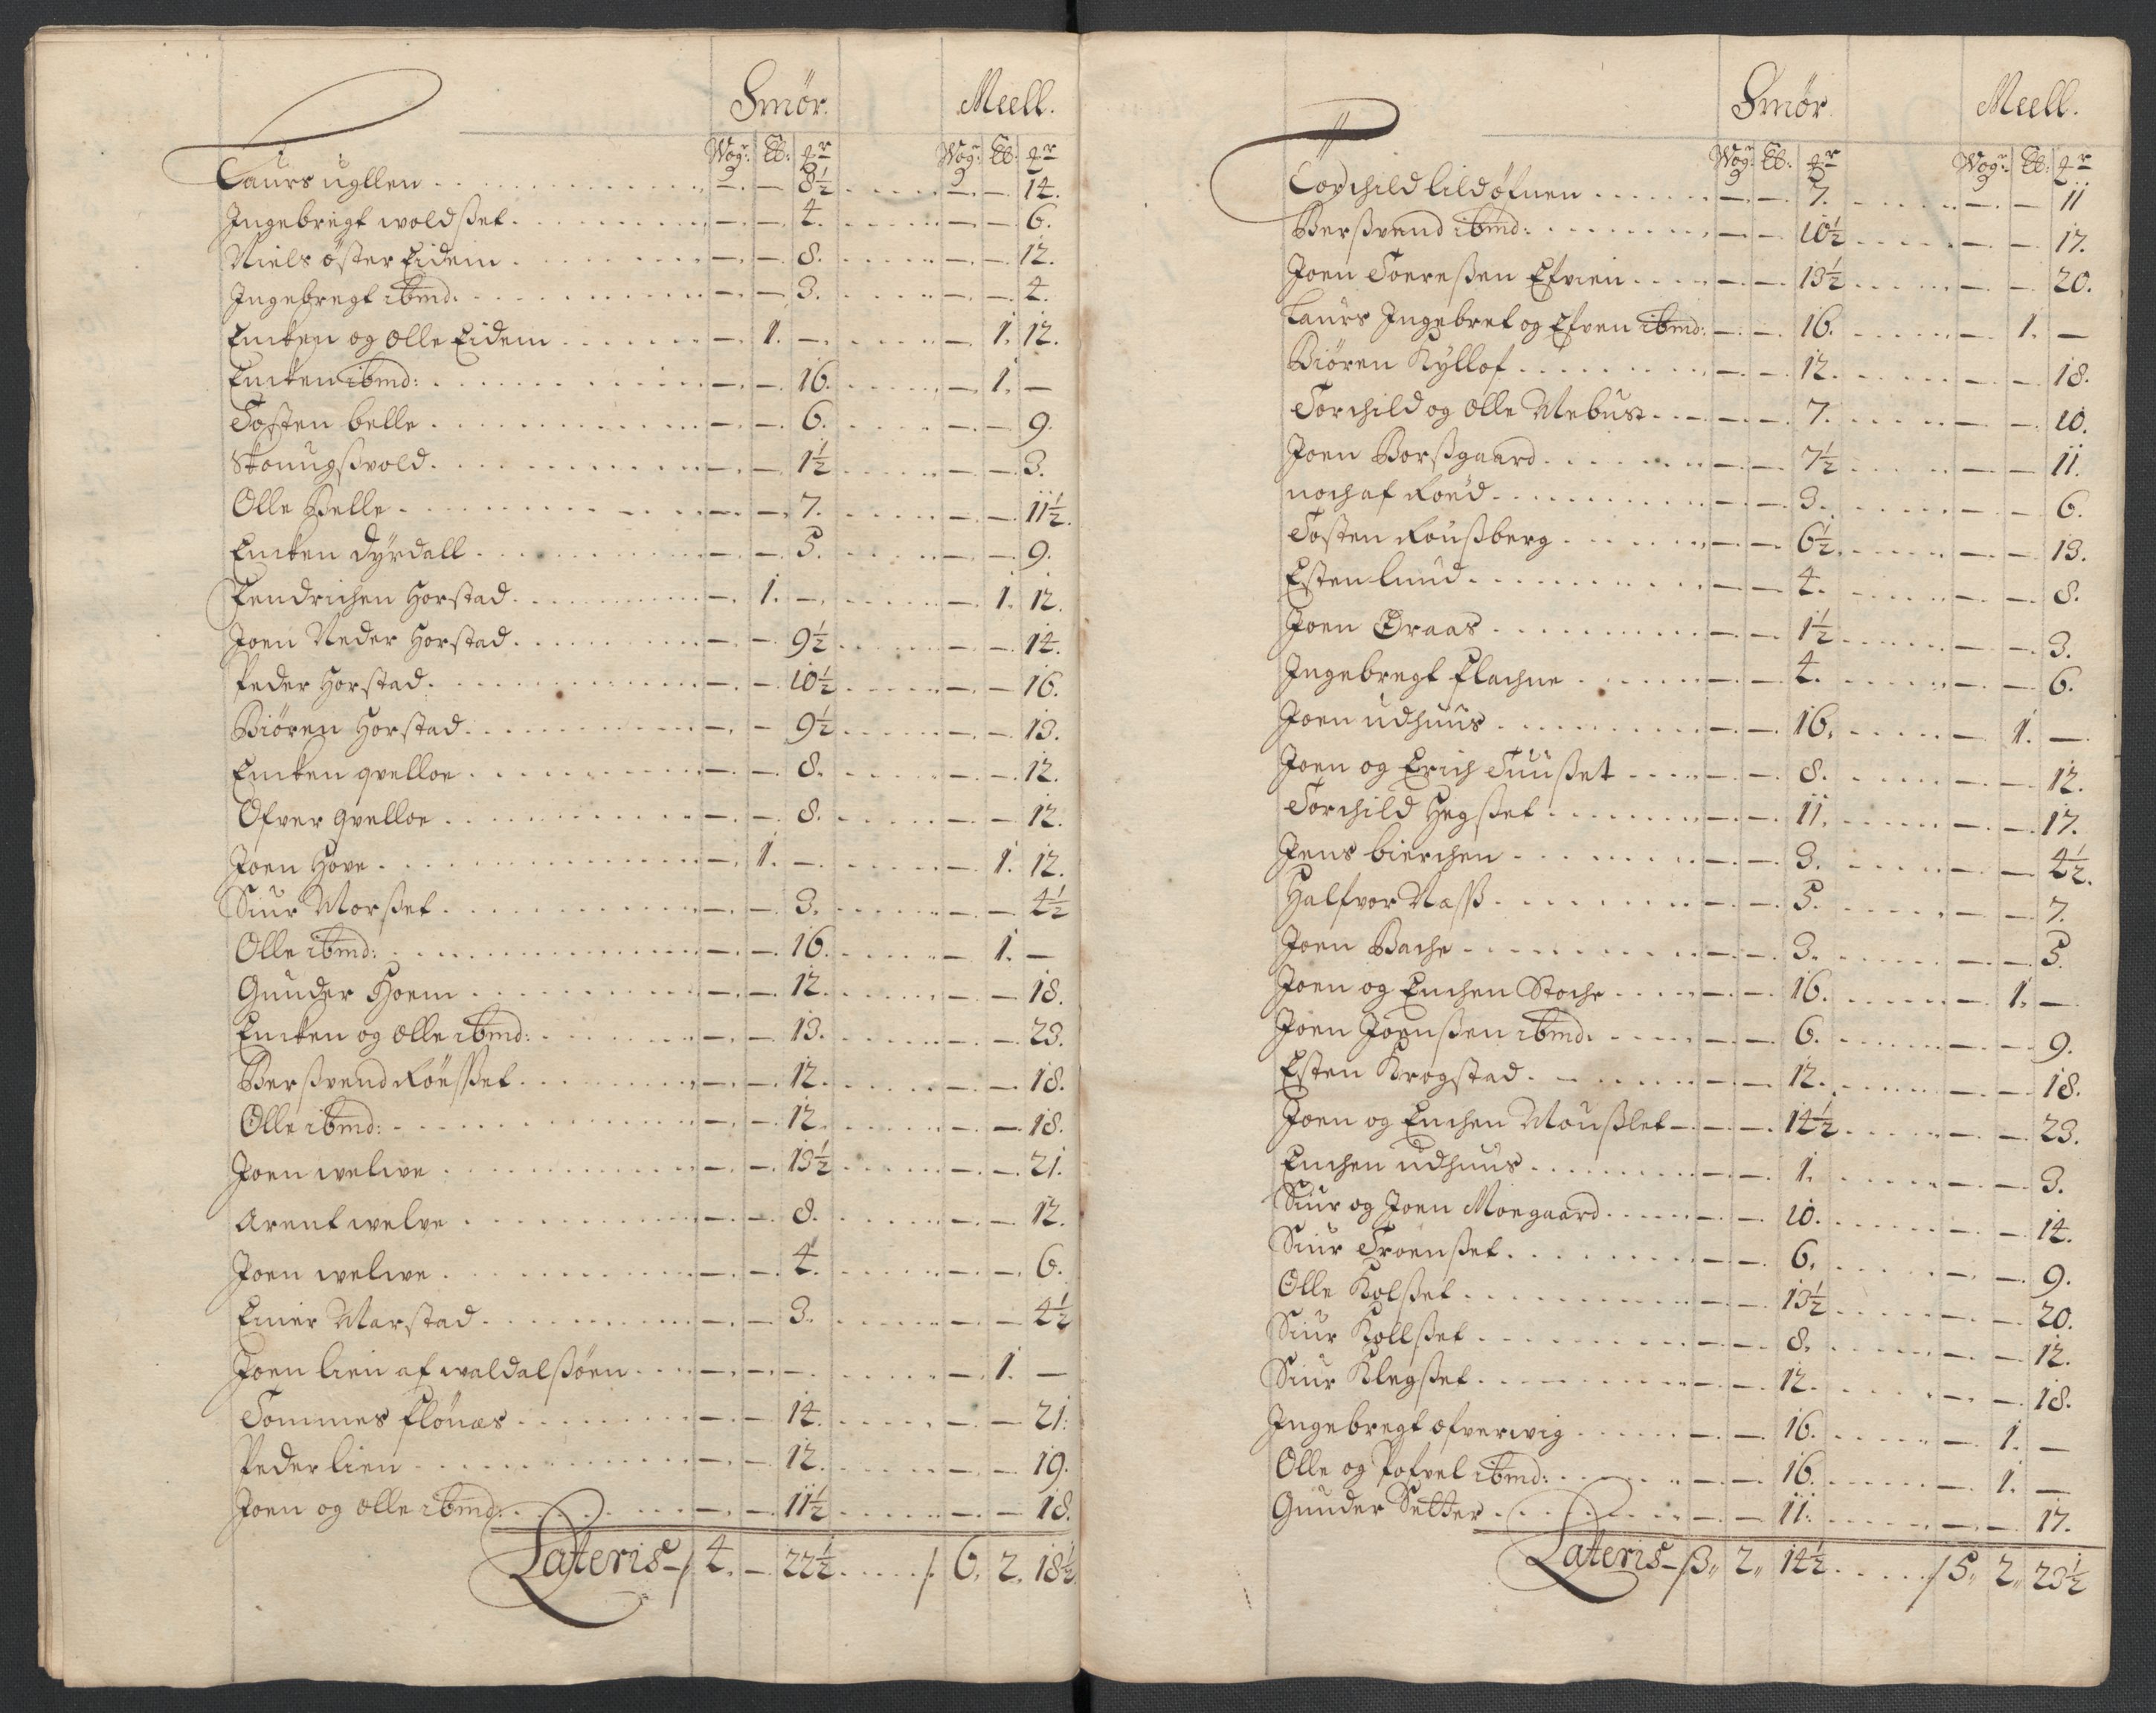 Smör. Meell.
Wog: ℔: ꝗr Wog: ℔: ꝗr
Laurs ugllen — — 8½ — — 14.
Ingebrigt woldßet — — 4. — — 6.
Niels öster Eidem — — 8. — — 12.
Ingebregt ibmd. — — 3. — — 4.
Encken og olle Eidem — 1. — — 1. 12.
Encken ibmd: — — 16. — 1. —
Tosten belle — — 6. — — 9.
— — 1½ — — 3.
Olle Belle — — 7. — — 11½.
Encken dyrdall — — 5. — — 9.
Hendrichen Horstad — 1. — — 1. 12.
Joen Neder Horstad — — 9½ — — 14.
Peder Horstad — — 10½ — — 16.
Biören Horstad — — 9½ — — 13.
Encken qvelloe — — 8. — — 12.
Ofver qvelloe — — 8. — — 12.
Joen Hove — 1. — — 1. 12.
Siur Morßet — — 3. — — 4½
Olle ibmd: — — 16. — 1. —
Gunder Hoem — — 12. — — 18.
Encken og olle ibmd: — — 13. — — 23.
Berßvend Röeßet — — 12. — — 18.
Olle ibmd: — — 12. — — 18.
Joen welwe — — 13½ — — 21.
Arent welve — — 8. — — 12.
Joen welwe — — 4. — — 6.
Einer Marstad — — 3. — — 4½
Joen lien af waldalßöen — — — — 1. —
Tommes flönæs — — 14. — — 21.
Peder lien — — 12. — — 19.
Joen og olle ibmd: — — 11½ — — 18.
Lateris 4. — 22½ 6. 2. 18½
Smör Meell.
Wog: ℔: ꝗr Wog: ℔: ꝗr
Torchild lildöfnen — — 7. — — 11
Berßvend ibmd: — — 10½ — — 17.
Joen Toereßen Efvien — — 13½ — — 20.
Laurs Ingebret og Efven ibmd: — — 16. — 1. —
Biören Kyllof — — 12. — — 18.
Torchild og olle Mebust — — 7. — — 10.
Joen Borßgaard — — 7½ — — 11.
noch af Roed — — 3. — — 6.
Tosten Roußberg — — 6½ — — 13.
Esten lund — — 4. — — 8.
Joen Øraas — — 1½ — — 3.
Ingebregt flachne — — 4. — — 6.
Joen udhuus — — 16. — 1. —
Joen og Erich Tuußet — — 8. — — 12.
Torchild Hegßet — — 11. — — 17.
Jens bierchen — — 3. — — 4½.
Halfvor Naß — — 5. — — 7.
Joen Bache — — 3. — — 5.
Joen og Enchen Stoche — — 16. — 1. —
Joen Joenßen ibmd. — — 6. — — 9.
Esten Krogstad — — 12. — — 18.
Joen og Enchen Moußlet — — 14½ — — 23.
Enchen udhuus — — 1. — — 3.
Siur og Joen Moegaard — — 10. — — 14.
Siur Troenßet — — 6. — — 9.
Olle Kolßet — — 13½ — — 20.
Siur Kollßet — — 8. — — 12.
Siur Klegßet — — 12. — — 18.
Ingebregt ofverwig — — 16. — 1. —
Olle og Pofvel ibmd: — — 16. — 1. —
Gunder Setter — — 11. — — 17.
Lateris 3. 2. 14½ 5. 2. 23½